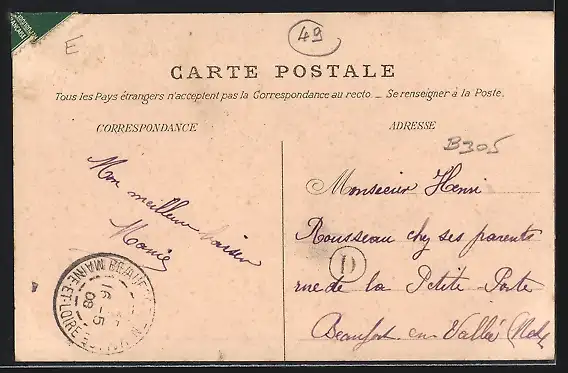 E
49
CARTE POSTALE
Tous les Pays étrangers n'acceptent pas la Correspondance au recto. — Se renseigner à la Poste.
CORRESPONDANCE
ADRESSE
B305
Mon meilleur baiser
Marie
Monsieur Henri
Rousseau chez ses parents
D
rue de la Petite Porte
Beaufort en Vallée
16 - 5
08
MAINE-ET-LOIRE